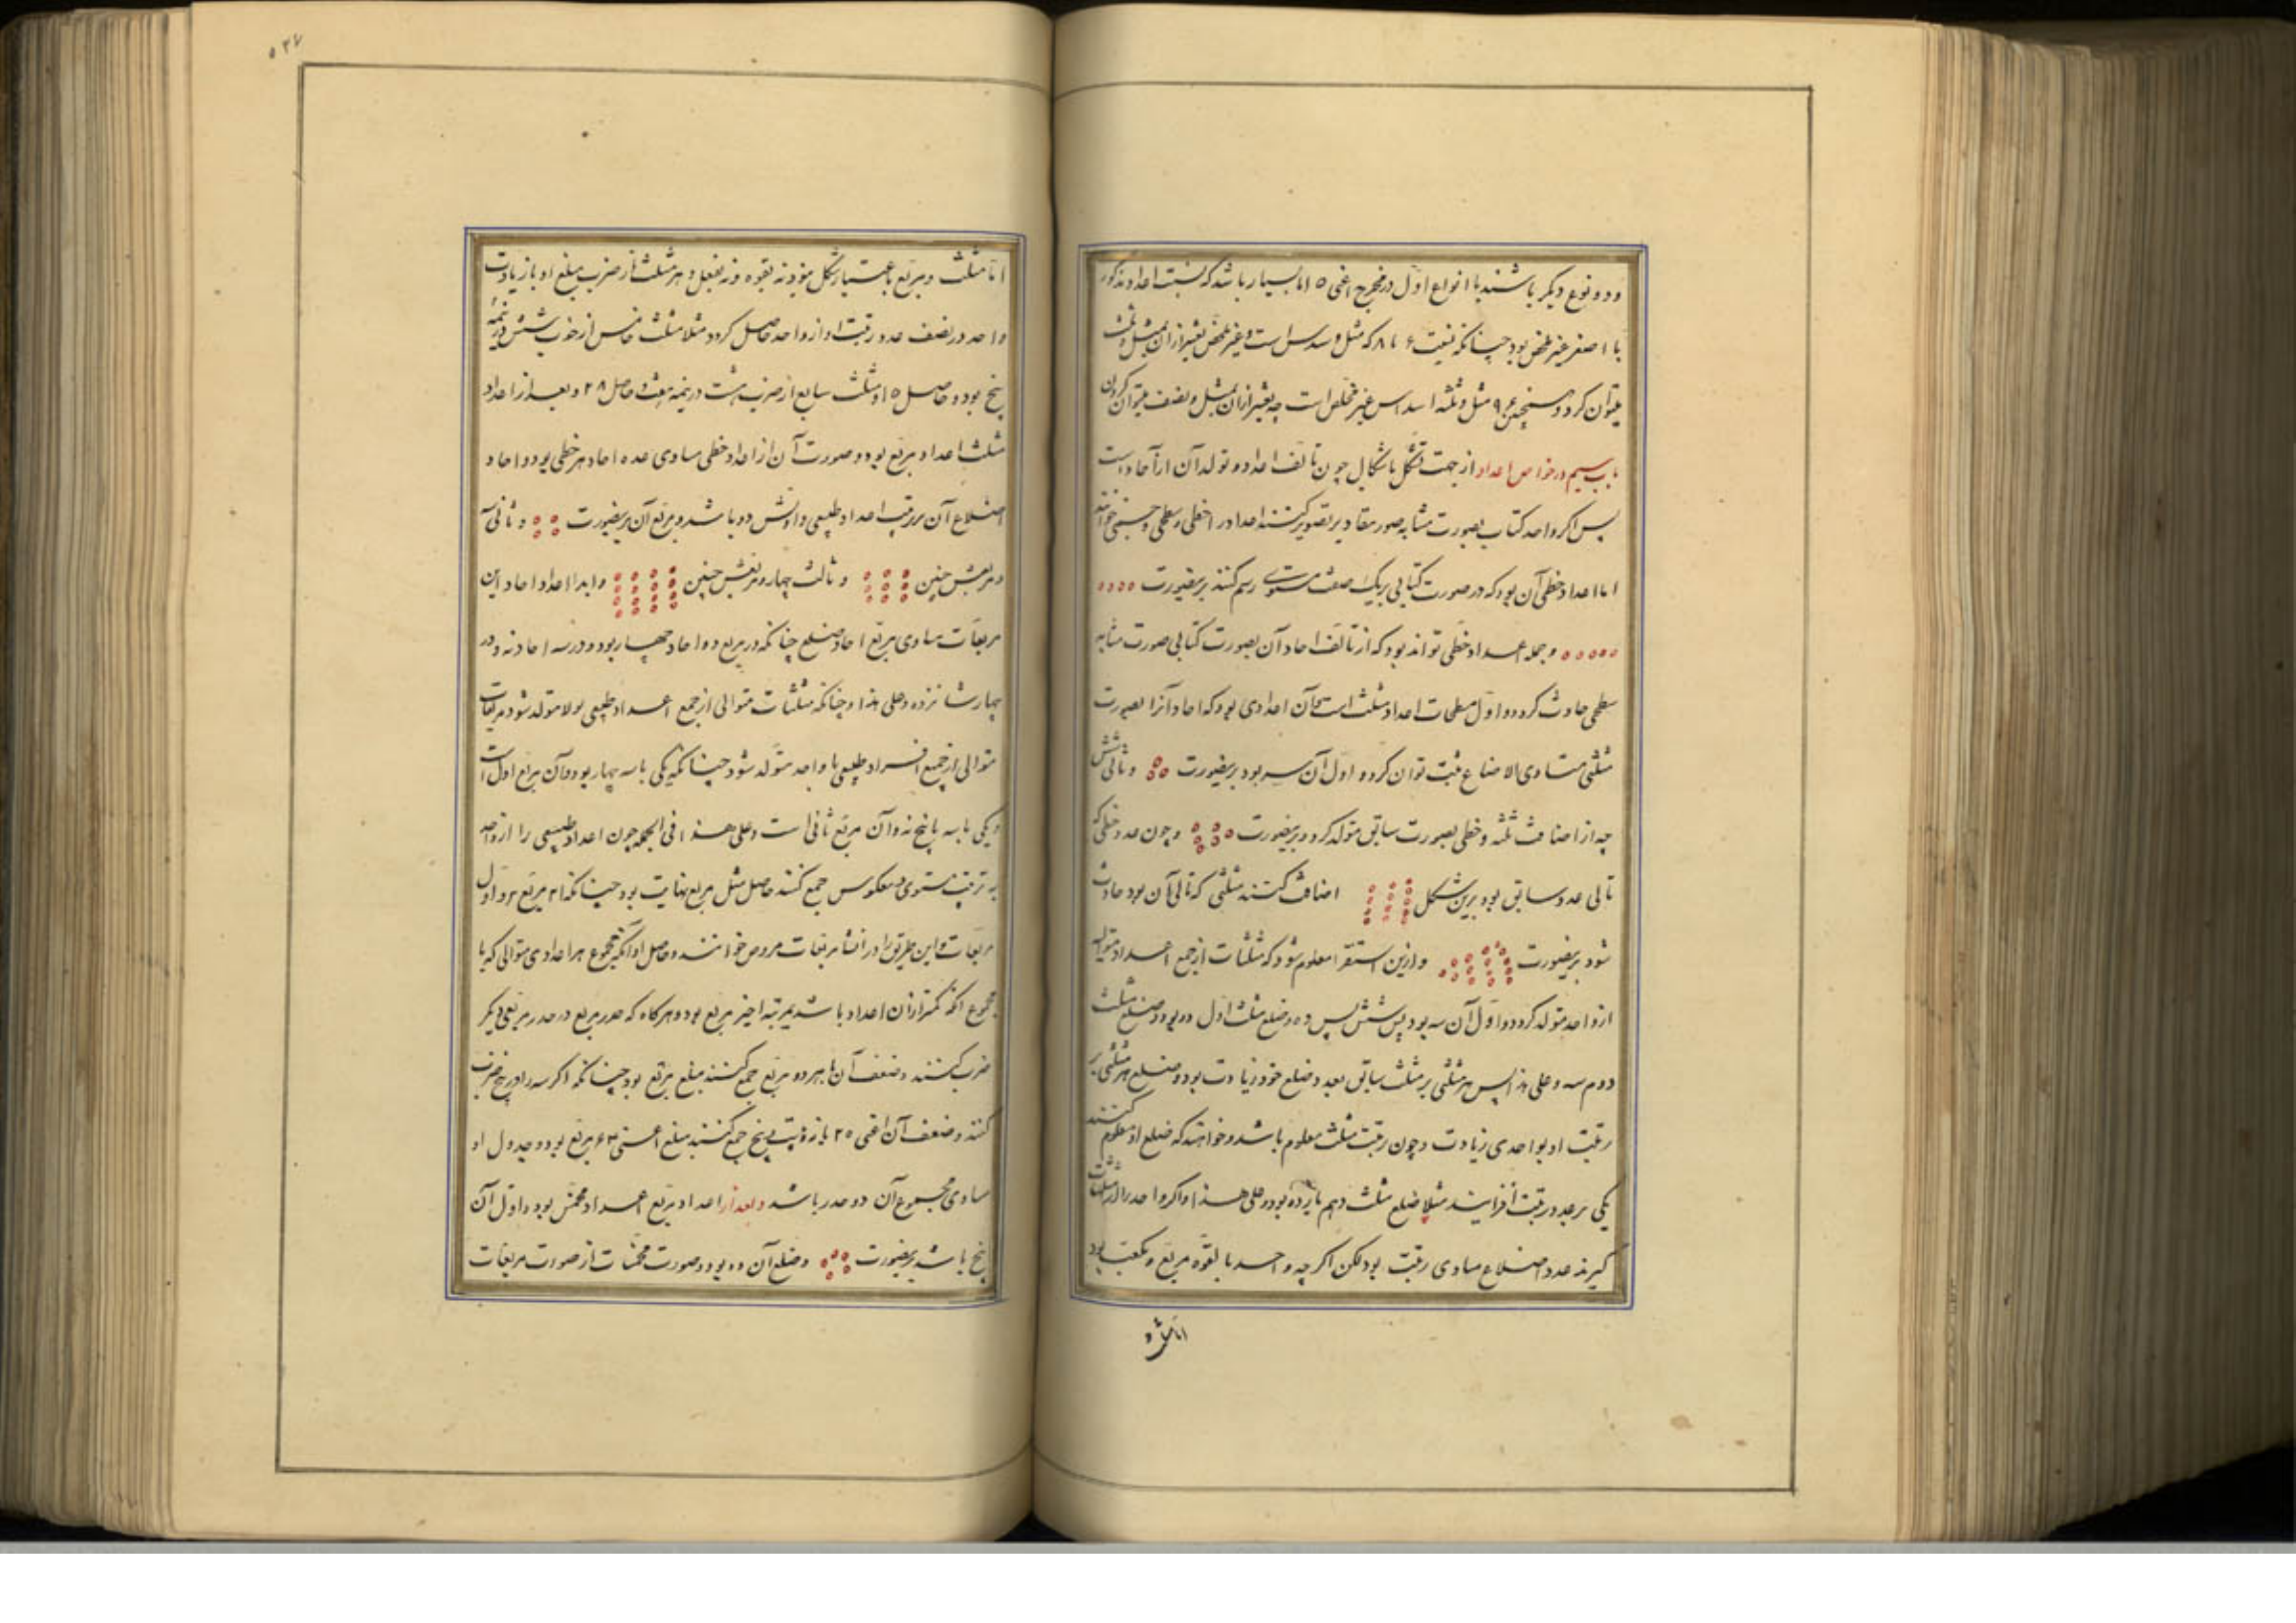 و دو نوع دیگر باشند با انواع اول در مخرج اعنی ٥ اما بسیار باشد که نسبت اعداد مذکور
با اصغر غیر ملخص بود چنانکه نسبت ۶ با ۸ که مثل و سدس است و غیر ملخص تعبیر از آن بمثل و ثلث
میتوان کرد و همچنین ۶ ۹ مثل و ثلثه اسداس غیر ملخص است چه تعبیر از آن بمثل و نصف میتوان کردن
باب سیم در خواص اعداد از جهت تشکل باشکال چون تألف اعداد و تولد آن از آحاد است
پس اگر واحد کتاب بصورت مشابه صور مقادیر تصویر کنند اعداد را خطی و سطحی و جسمی خوانند
اما اعداد خطی آن بود که در صورت کتابی بر یک صف مستوی رسم کنند برینصورت ٥٥٥٥
٥٥٥٥٥ و جمله اعداد خطی تواند بود که از تألف احاد آن بصورت کتابی صورت مشابه
سطحی حادث گردد و اول مسطحات اعداد مثلث است و آن اعدادی بود که احاد آنرا بصورت
مثلثی متساوی الاضلاع ثبت توان کرد و اول آن سه بود برینصورت و ثانی شش
چه از اضافت ثلثه و خطی بصورت سابق متولد گردد برینصورت و چون عدد خطی که
تالی عدد سابق بود برین شکل اضافت کنند مثلثی که تالی آن بود حادث
شود برینصورت و ازین استقرا معلوم شود که مثلثات از جمع اعداد متوالیه
از واحد متولد گردد و اول آن سه بود پس شش پس ده و ضلع مثلث اول دو بود و ضلع مثلث
دوم سه و علی هذا پس هر مثلثی بر مثلث سابق بعدد ضلع خود زیادت بود و ضلع هر مثلثی بر
رتبت او بواحدی زیادت و چون رتبت مثلث معلوم باشد و خواهند که ضلع او معلوم کنند
یکی بر عدد رتبت افزایند مثلا ضلع مثلث دهم یازده بود و علی هذا و اگر واحد را از مثلثات
گیرند عدد اضلاع مساوی رتبت بود لکن اگر چه واحد بالقوه مربع و مکعب بود
اما مثلث و
٥٣٧
اما مثلث و مربع باعتبار شکل موذنه بقوه و نه بفعل و هر مثلث از ضرب مبلغ او با زیادت
واحد در نصف عدد رتبت او از واحد حاصل گردد مثلا مثلث خامس از ضرب شش در نیمه
پنج بود و حاصل ١٥ و مثلث سابع از ضرب هشت در نیمه هفت و حاصل ٢٨ و بعد از اعداد
مثلث اعداد مربع بود و صورت آن از اعداد خطی مساوی عده احاد هر خطی بود و احاد
اضلاع آن بر ترتیب اعداد طبیعی و اولش دو باشد و مربع آن برینصورت و ثانی سه
و مربعش چنین و ثالث چهار و مربعش چنین و ابدا اعداد احاد این
مربعات مساوی مربع احاد ضلع چنانکه در مربع دو احاد چهار بود و در سه احاد نه و در
چهار شانزده و علی هذا و چنانکه مثلثات متوالی از جمع اعداد طبیعی بولا متولد شود مربعات
متوالی از جمع افراد طبیعی با واحد متولد شود چنانکه یکی با سه چهار بود و آن مربع اول است
و یکی با سه با پنج نه و آن مربع ثانی است و علی هذا فی الجمله چون اعداد طبیعی را از واحد
به ترتیب مستوی و معکوس جمع کنند حاصل مثل مربع نهایت بود چنانکه ١ ٢ ١ مربع ٢ و اول
مربعات و این طریق را در انشا مربعات مروض خوانند و حاصل او آنکه مجموع هر اعدادی متوالی که با
مجموع آنکه کمتر از آن اعداد باشد بمرتبه اخیر مربع بود و هرگاه که جذر مربع در جذر مربعی دیگر
ضرب کنند و ضعف آن با هر دو مربع جمع کنند مبلغ مربع بود چنانکه اگر سه را در پنج ضرب
کنند و ضعف آن اعنی ٣٠ با نه و بیست و پنج جمع کنند مبلغ اعنی ۶۴ مربع بود و جذر اول او
مساوی مجموع آن دو جذر باشد و بعد از اعداد مربع اعداد مخمس بود و اول آن
پنج باشد برینصورت و ضلع آن دو بود و صورت مخمسات از صورت مربعات